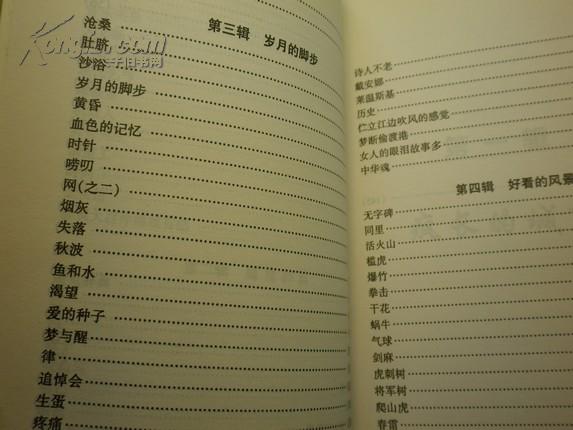 第三辑 岁月的脚步
沧桑
肚脐
沙浴
岁月的脚步
黄昏
血色的记忆
时针
唠叨
网(之二)
烟灰
失落
秋波
鱼和水
渴望
爱的种子
梦与醒
律
追悼会
生蛋
疼痛
诗人不老
戴安娜
莱温斯基
历史
伫立江边吹风的感觉
梦断偷渡港
女人的眼泪故事多
中华魂
第四辑 好看的风景
无字碑
同里
活火山
槛虎
爆竹
拳击
干花
蜗牛
气球
剑麻
虎刺树
将军树
爬山虎
春雷